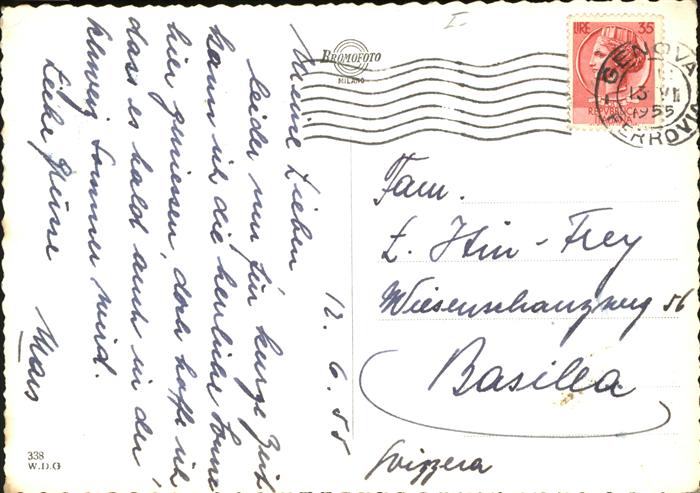 12. 6. 55
Meine Lieben
leider nur für kurze Zeit
kann ich die herrliche Sonne
hier geniessen, doch hoffe ich
dass es bald auch in der
Schweiz Sommer wird.
Liebe Grüsse
BROMOFOTO
MILANO
I.
LIRE 35
GENOVA
13 VI
1955
FERROVIA
Fam.
E. Hin-Frey
Wiesenschanzweg 56
Basilea
Svizzera
338
W.D.G